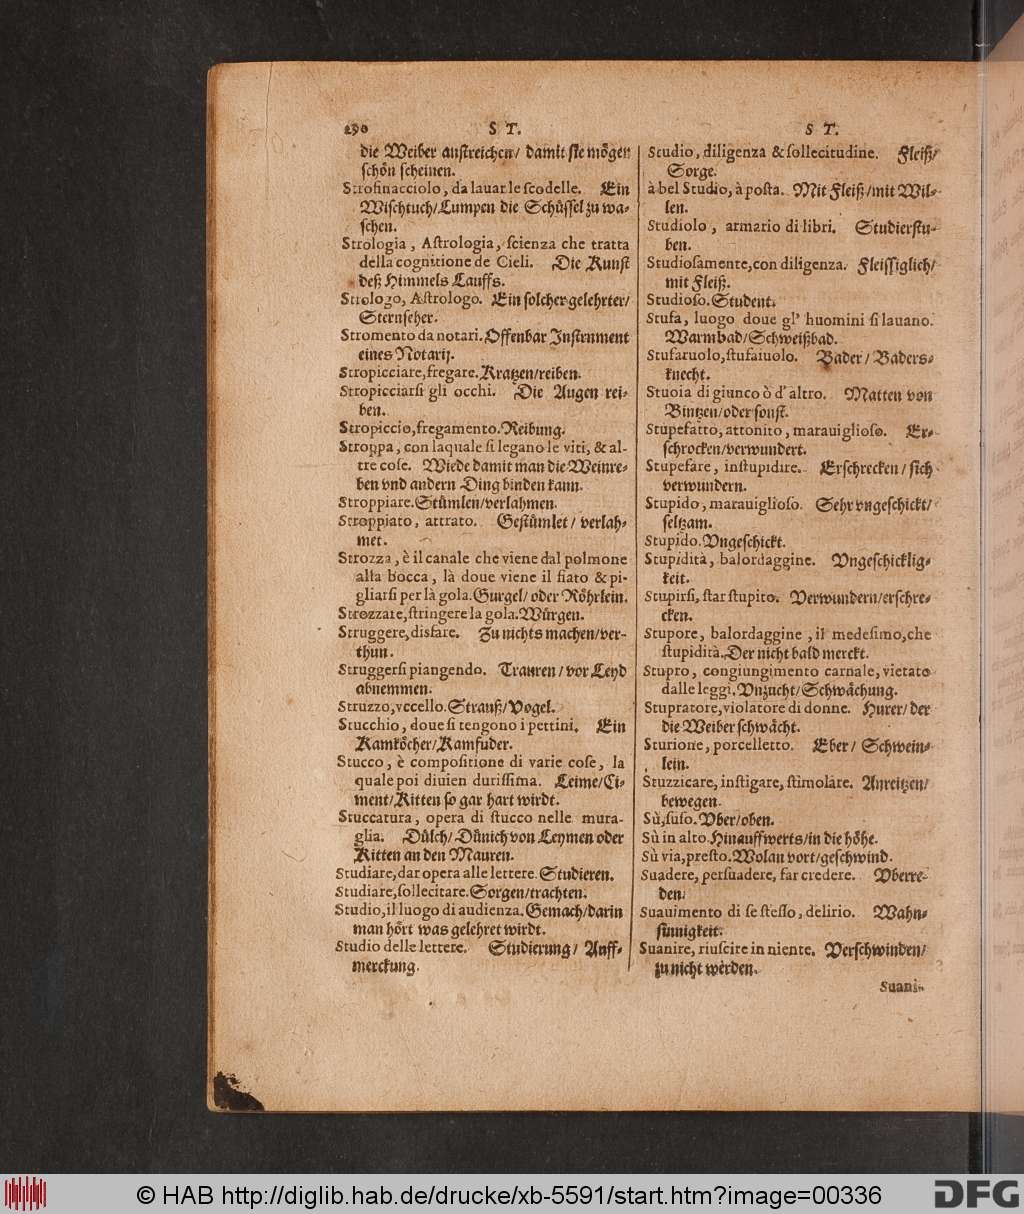 290 S T. S T.
die Weiber anstreichen/ damit sie mögen
schön scheinen.
Strofinacciolo, da lauar le scodelle. Ein
Wischtuch/Lumpen die Schüssel zu wa-
schen.
Strologia, Astrologia, scienza che tratta
della cognitione de Cieli. Die Kunst
deß Himmels Lauffs.
Strologo, Astrologo. Ein solcher gelehrter/
Sternseher.
Stromento da notari. Offenbar Instrument
eines Notarij.
Stropicciare, fregare. Kratzen/reiben.
Stropicciarsi gli occhi. Die Augen rei-
ben.
Stropiccio, fregamento. Reibung.
Stroppa, con laquale si legano le viti, & al-
tre cose. Wiede damit man die Weinre-
ben vnd andern Ding binden kann.
Stroppiare. Stümlen/verlahmen.
Stroppiato, attrato. Gestümlet/ verlah-
met.
Strozza, è il canale che viene dal polmone
alla bocca, là doue viene il fiato & pi-
gliarsi per là gola. Gurgel/ oder Röhrlein.
Strozzare, stringere la gola. Würgen.
Struggere, disfare. Zu nichts machen/ver-
thun.
Struggersi piangendo. Trauren/ vor Leyd
abnemmen.
Struzzo, vccello. Strauß/Vogel.
Stucchio, doue si tengono i pettini. Ein
Kamköcher/Kamfuder.
Stucco, è compositione di varie cose, la
quale poi diuien durissima. Leime/Ci-
ment/Kitten so gar hart wirdt.
Stuccatura, opera di stucco nelle mura-
glia. Dülch/ Dünich von Leymen oder
Kitten an den Mauren.
Studiare, dar opera alle lettere. Studieren.
Studiare, sollecitare. Sorgen/trachten.
Studio, il luogo di audienza. Gemach/darin
man hört was gelehret wirdt.
Studio delle lettere. Studierung/ Auff-
merckung.
Studio, diligenza & sollecitudine. Fleiß/
Sorge.
à bel Studio, à posta. Mit Fleiß/mit Wil-
len.
Studiolo, armario di libri. Studierstu-
ben.
Studiosamente, con diligenza. Fleissiglich/
mit Fleiß.
Studioso. Student.
Stufa, luogo doue gl' huomini si lauano.
Warmbad/Schweißbad.
Stufaruolo, stufaiuolo. Bader/ Baders-
knecht.
Stuoia di giunco ò d'altro. Matten von
Bintzen/oder sonst.
Stupefatto, attonito, marauiglioso. Er-
schrocken/verwundert.
Stupefare, instupidire. Erschrecken/ sich
verwundern.
Stupido, marauiglioso. Sehr vngeschickt/
seltzam.
Stupido. Vngeschickt.
Stupidità, balordaggine. Vngeschicklig-
keit.
Stupirsi, star stupito. Verwundern/erschre-
cken.
Stupore, balordaggine, il medesimo, che
stupidità. Der nicht bald merckt.
Stupro, congiungimento carnale, vietato
dalle leggi. Vnzucht/Schwächung.
Stupratore, violatore di donne. Hurer/ der
die Weiber schwächt.
Sturione, porcelletto. Eber/ Schwein-
lein.
Stuzzicare, instigare, stimolare. Anreitzen/
bewegen.
Sù, suso. Vber/oben.
Sù in alto. Hinauffwerts/in die höhe.
Sù via, presto. Wolan vort/geschwind.
Suadere, persuadere, far credere. Vberre-
den.
Suauimento di se stesso, delirio. Wahn-
sinnigkeit.
Suanire, riuscire in niente. Verschwinden/
zu nicht werden.
Suani-
© HAB http://diglib.hab.de/drucke/xb-5591/start.htm?image=00336 DFG